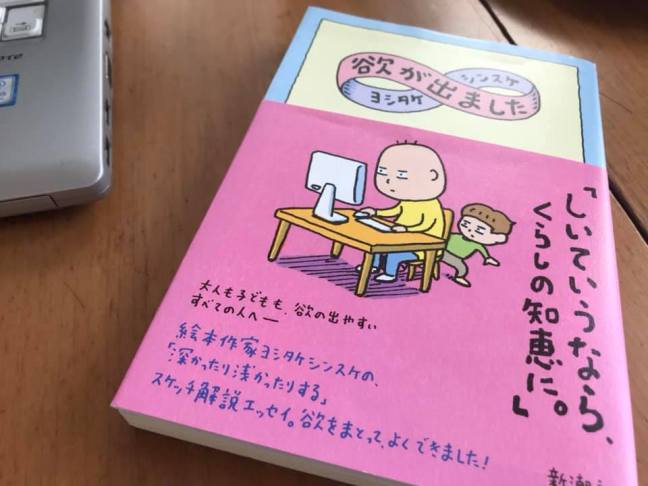 欲が出ました
ヨシタケ
シンスケ
「しいていうなら、
くらしの知恵に。」
大人も子どもも、欲の出やすい
すべての人へ──
絵本作家ヨシタケシンスケの、
「深かったり浅かったりする」
スケッチ解説エッセイ。欲をまとって、よくできました!
新潮